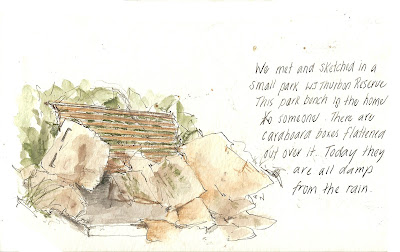 We met and sketched in a
small park Thurbon Reserve
This park bench is the home
to someone. There are
cardboard boxes flattened
out over it. Today they
are all damp
from the rain.